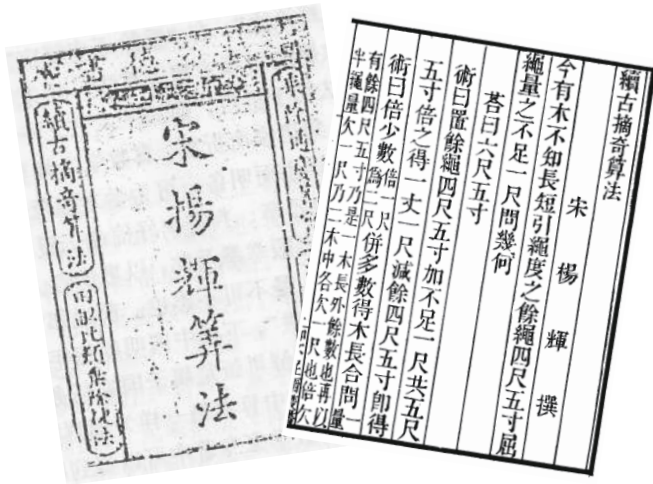 宋揚輝算法
續古摘奇算法
田畝比類乘除捷法
續古摘奇算法
宋 楊 輝 撰
今有木不知長短引繩度之餘繩四尺五寸屈
繩量之不足一尺問幾何
荅曰六尺五寸
術曰置餘繩四尺五寸加不足一尺共五尺
五寸倍之得一丈一尺減餘四尺五寸卽得
術曰倍少數倍一尺爲二尺倂多數得木長合問一量
有餘四尺五寸乃是一木長外餘數也再以
半繩量欠一尺乃二木中各欠一尺也倍欠